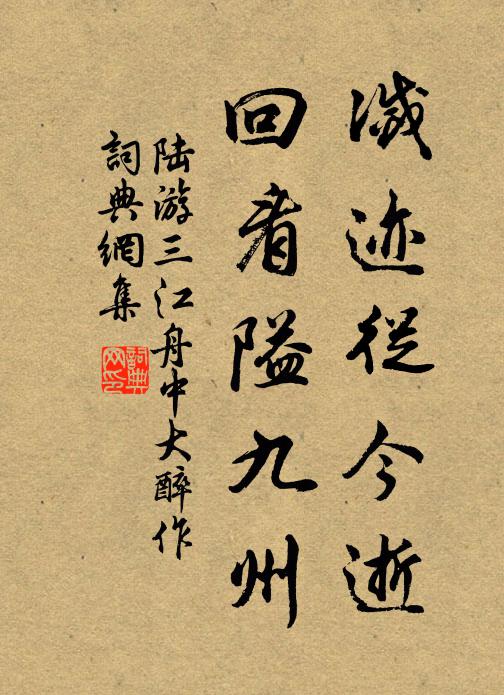 滅迹從今逝
回看隘九州
陆游三江舟中大醉作
詞典網集
詞典网印